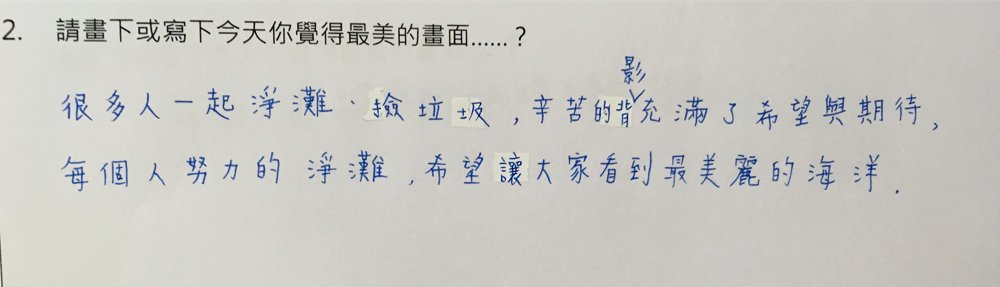 2. 請畫下或寫下今天你覺得最美的畫面……？
很多人一起淨灘、撿垃圾，辛苦的背影充滿了希望與期待，
每個人努力的淨灘，希望讓大家看到最美麗的海洋.